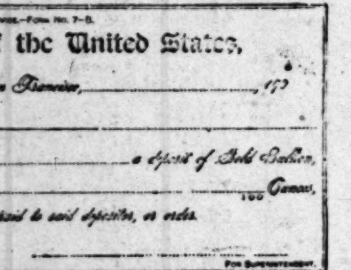 VICE.–Form No. 7–B.
f the United States,
n Francisco, 190
a deposit of Gold Bullion,
100 Ounces,
said depositor, or order.
For Superintendent.